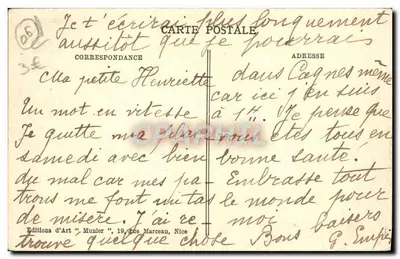 06
3€
Je t'écrirai plus longuement
aussitôt que je pourrai
CARTE POSTALE
CORRESPONDANCE
ADRESSE
Ma petite Henriette
Un mot en vitesse
Je quitte ma place
samedi avec bien
du mal car mes pa
trons me font un tas
de misère. J'ai re
trouvé quelque chose
dans Cagnes même
car ici j'en suis
à 1H. Je pense que
vous êtes tous en
bonne santé.
Embrasse tout
le monde pour
moi
Bons baisers
G.
Editions d'Art " Munier ", 19, Rue Marceau, Nice